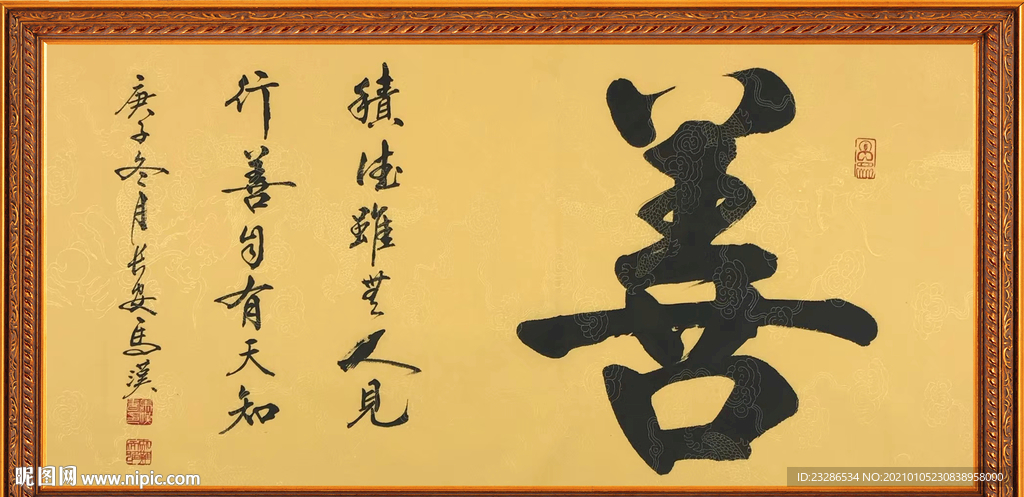 善
積德雖無人見
行善自有天知
庚子冬月長安馬漢
昵图网 www.nipic.com
ID:23286534 NO:20210105230838958000